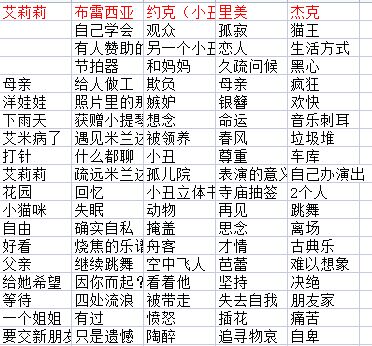 艾莉莉 布雷西亚 约克（小丑 里美 杰克
自己学会 观众 孤寂 猫王
有人赞助的 另一个小丑 恋人 生活方式
节拍器 和妈妈 久疏问候 黑心
母亲 给人做工 欺负 母亲 疯狂
洋娃娃 照片里的那 嫉妒 银簪 欢快
下雨天 获赠小提琴 想念 命运 音乐刺耳
艾米病了 遇见米兰达 被领养 春风 垃圾堆
打针 什么都聊 小丑 尊重 车库
艾莉莉 疏远米兰达 孤儿院 表演的意义 自己办演出
花园 回忆 小丑立体书 寺庙抽签 2个人
小猫咪 失眠 动物 再见 跳舞
自由 确实自私 掩盖 思念 离场
好看 烧焦的乐谱 舟客 才情 古典乐
父亲 继续跳舞 空中飞人 芭蕾 难以想象
给她希望 因你而起？ 看着他 坚持 决绝
等待 四处流浪 被带走 失去自我 朋友家
一个姐姐 有过 愤怒 插花 痛苦
要交新朋友 只是遗憾 陶醉 追寻物哀 自卑